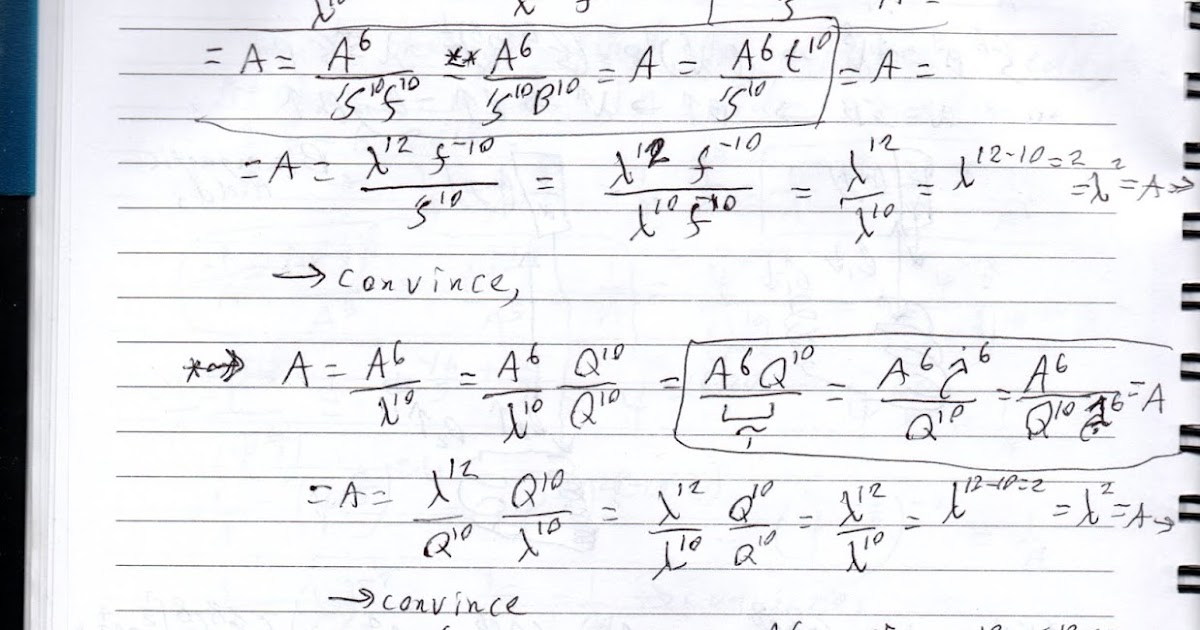 = A = A⁶/(S¹⁰f¹⁰) = ** A⁶/(S¹⁰B¹⁰) = A = A⁶t¹⁰/S¹⁰ = A =
= A = λ¹² f⁻¹⁰/S¹⁰ = λ¹² f⁻¹⁰/(λ¹⁰ f⁻¹⁰) = λ¹²/λ¹⁰ = λ¹²⁻¹⁰⁼² = λ² = A →
→ convince,
*→ A = A⁶/λ¹⁰ = A⁶/λ¹⁰ Q¹⁰/Q¹⁰ = A⁶Q¹⁰ = A⁶ /Q¹⁰ = A⁶/Q¹⁰ = A
= A = λ¹²/Q¹⁰ Q¹⁰/λ¹⁰ = λ¹²/λ¹⁰ Q¹⁰/Q¹⁰ = λ¹²/λ¹⁰ = λ¹²⁻¹⁰⁼² = λ² = A →
→ convince